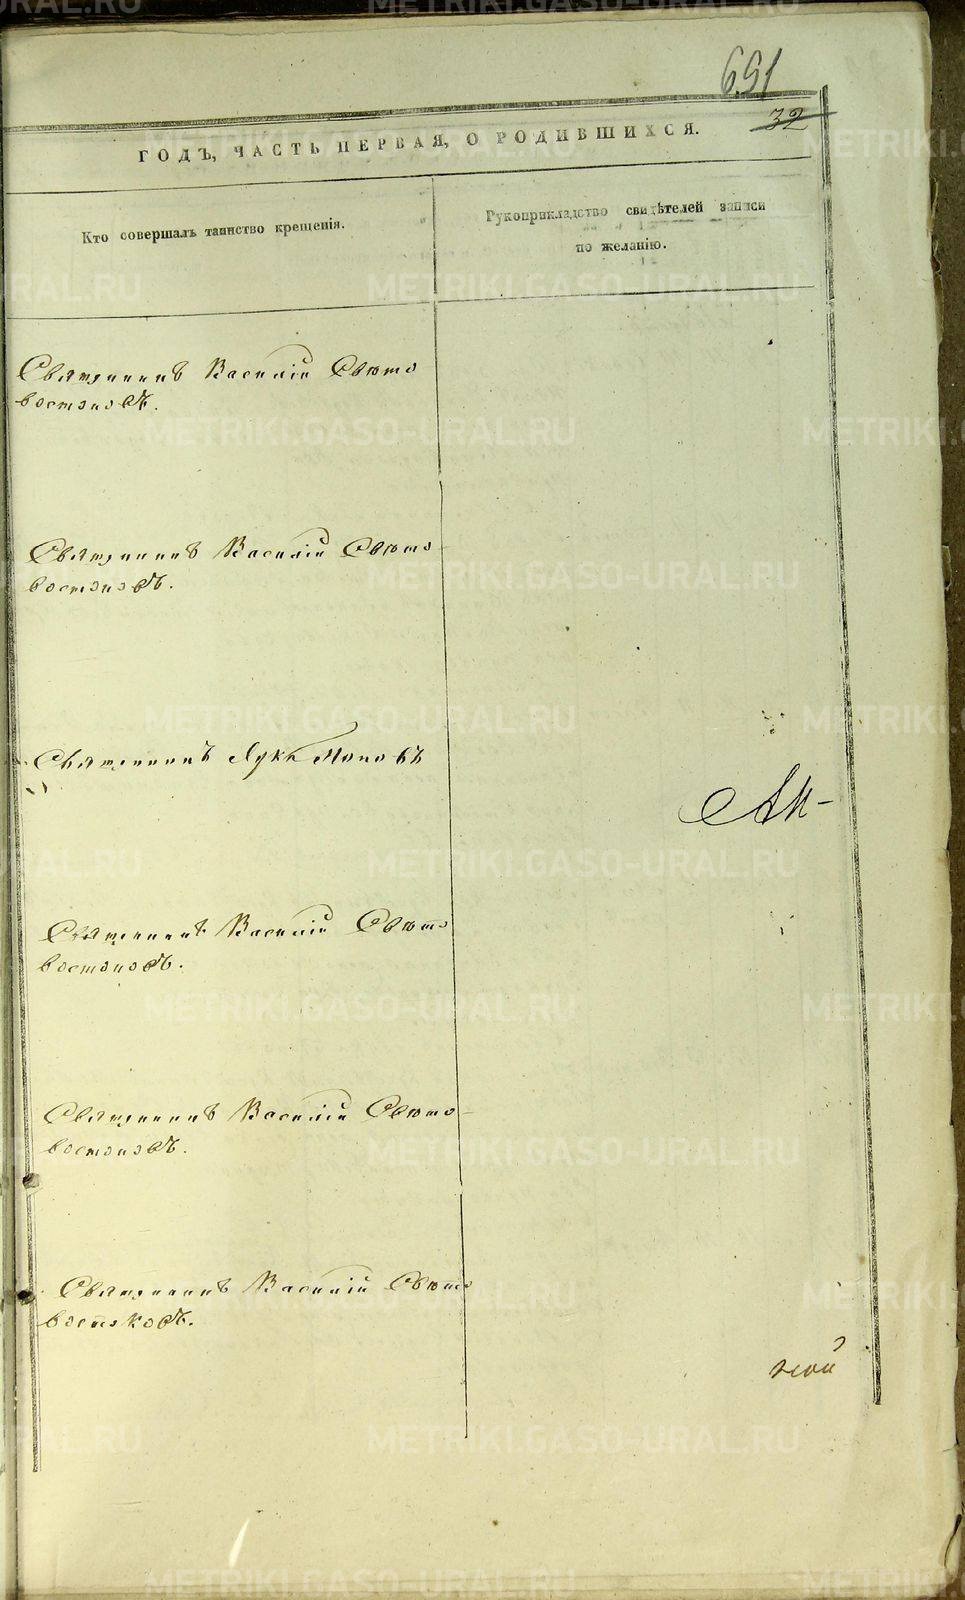 691
32
ГОДЪ, ЧАСТЬ ПЕРВАЯ, О РОДИВШИХСЯ.
Кто совершалъ таинство крещенія.
Рукоприкладство свидѣтелей записи
по желанію.
Священникъ Василій Свѣто
востоковъ.
Священникъ Василій Свѣто
востоковъ.
Священникъ Лука Поповъ
Священникъ Василій Свѣто
востоковъ.
Священникъ Василій Свѣто
востоковъ.
Священникъ Василій Свѣто
востоковъ.
METRIKI.GASO-URAL.RU